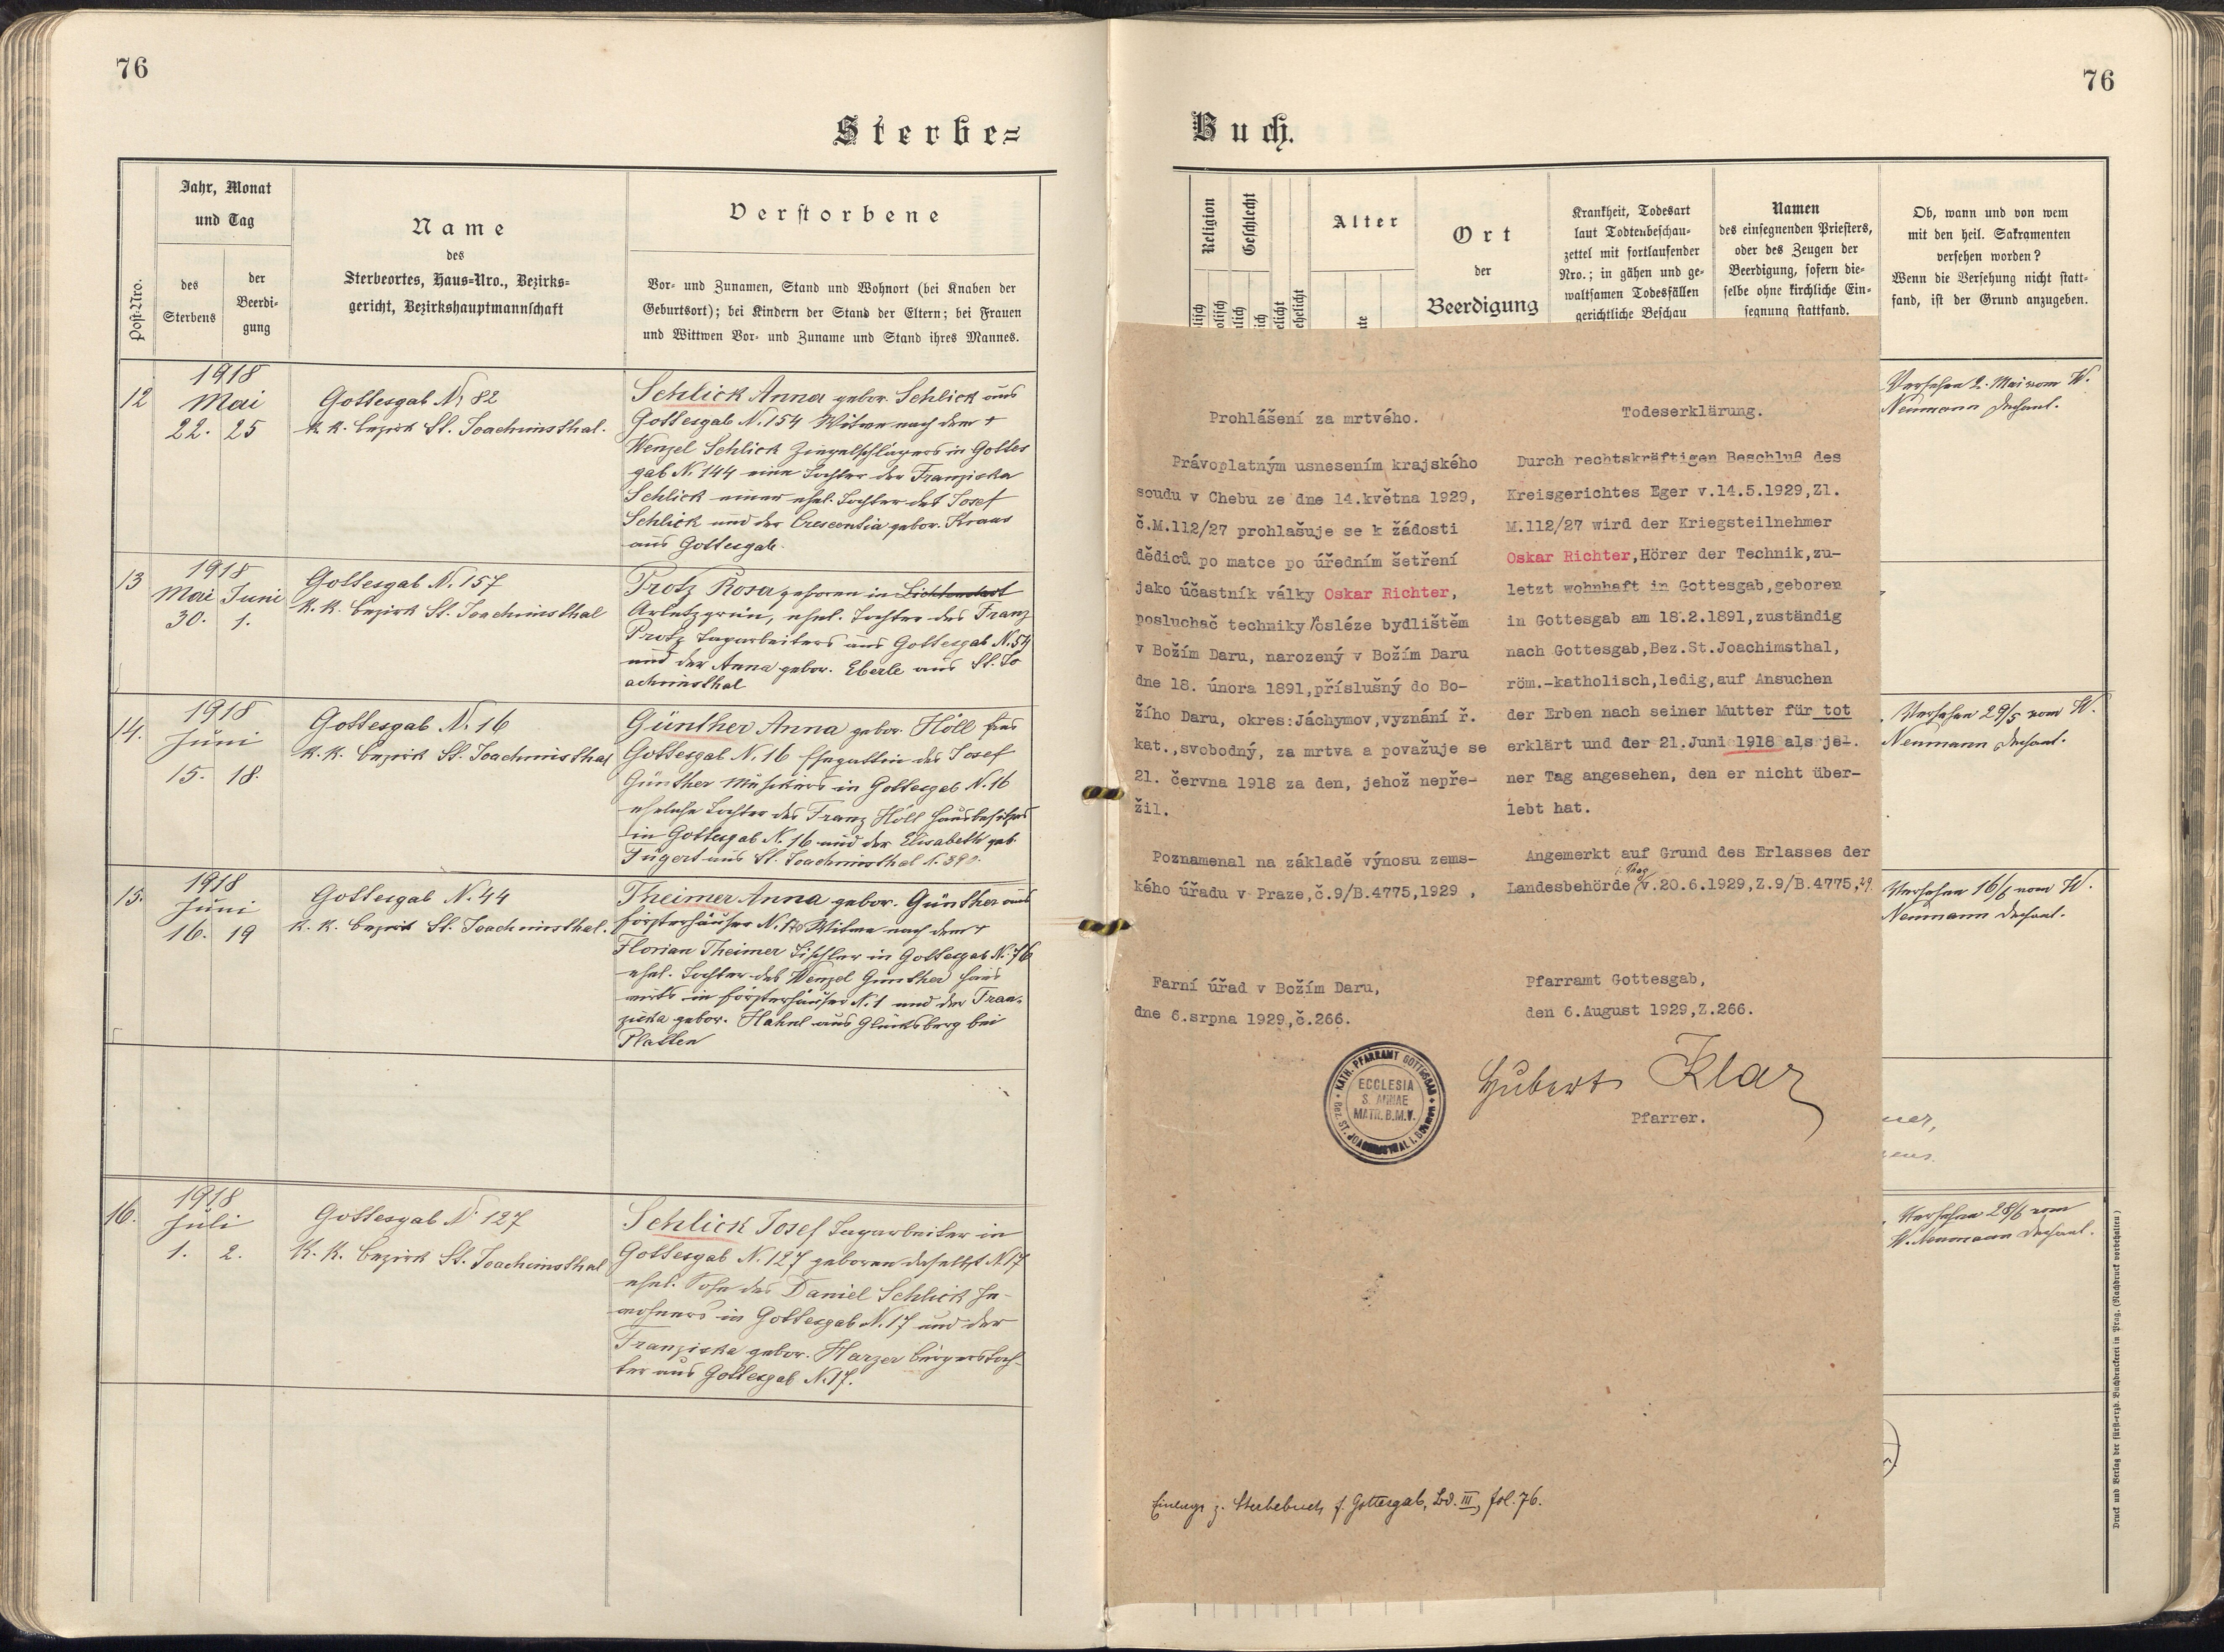 76
76
Sterbe=
Buch.
Post-Nro.
Jahr, Monat
und Tag
des
Sterbens
der
Beerdi-
gung
Name
des
Sterbeortes, Haus=Nro., Bezirks=
gericht, Bezirkshauptmannschaft
Verstorbene
Vor- und Zunamen, Stand und Wohnort (bei Knaben der
Geburtsort); bei Kindern der Stand der Eltern; bei Frauen
und Wittwen Vor- und Zuname und Stand ihres Mannes.
12
1918
Mai
22. 25
Gottesgab N. 82
k. k. Bezirk St. Joachimsthal.
Schlick Anna gebor. Schlick aus
Gottesgab N. 154 Witwe nach dem +
Wenzel Schlick Ziegelschlägers in Gottes
gab N. 144 eine Tochter der Franziska
Schlick einer ehel. Tochter des Josef
Schlick und der Crescentia gebor. Kraus
aus Gottesgab.
13
1918
Mai Juni
30. 1.
Gottesgab N. 157
K. K. Bezirk St. Joachimsthal
Protz Rosa geboren in Lichtenstadt
Arletzgrün, ehel. Tochter des Franz
Protz Tagarbeiters aus Gottesgab N. 54
und der Anna gebor. Eberle aus St. Jo
achimsthal
14.
1918
Juni
15. 18.
Gottesgab N. 16
K. K. Bezirk St. Joachimsthal
Günther Anna gebor. Höll aus
Gottesgab N. 16 Ehegattin des Josef
Günther Musikers in Gottesgab N. 16
eheliche Tochter des Franz Höll Hausbesitzers
in Gottesgab N. 16 und der Elisabeth geb.
aus St. Joachimsthal N. 390.
15.
1918
Juni
16. 19
Gottesgab N. 44
K. K. Bezirk St. Joachimsthal.
Theimer Anna gebor. Günther aus
Försterhäuser N. Witwe nach dem +
Florian Theimer Tischler in Gottesgab N. 76
ehel. Tochter des Wenzel Günther Haus
wirts in Försterhäuser N. 1 und der Fran-
ziska gebor. Hahnl aus Glücksberg bei
Platten
16.
1918
Juli
1. 2.
Gottesgab N. 127
K. K. Bezirk St. Joachimsthal
Schlick Josef Tagarbeiter in
Gottesgab N. 127 geboren daselbst N. 17
ehel. Sohn des Daniel Schlick In-
wohners in Gottesgab N. 17 und der
Franziska gebor. Harzer Bürgerstoch-
ter aus Gottesgab N. 17.
Religion
Geschlecht
Alter
Ort
der
Beerdigung
Krankheit, Todesart
laut Todtenbeschau-
zettel mit fortlaufender
Nro.; in gähen und ge-
waltsamen Todesfällen
gerichtliche Beschau
Namen
des einsegnenden Priesters,
oder des Zeugen der
Beerdigung, sofern die-
selbe ohne kirchliche Ein-
segnung stattfand.
Ob, wann und von wem
mit den heil. Sakramenten
versehen worden?
Wenn die Versehung nicht statt-
fand, ist der Grund anzugeben.
Prohlášení za mrtvého.
Právoplatným usnesením krajského
soudu v Chebu ze dne 14.května 1929,
č.M.112/27 prohlašuje se k žádosti
dědiců po matce po úředním šetření
jako účastník války Oskar Richter,
posluchač techniky posléze bydlištěm
v Božím Daru, narozený v Božím Daru
dne 18. února 1891,příslušný do Bo-
žího Daru, okres:Jáchymov,vyznání ř.
kat.,svobodný, za mrtva a považuje se
21. června 1918 za den, jehož nepře-
žil.
Poznamenal na základě výnosu zems-
kého úřadu v Praze,č.9/B.4775,1929 ,
Farní úřad v Božím Daru,
dne 6.srpna 1929,č.266.
Todeserklärung.
Durch rechtskräftigen Beschluß des
Kreisgerichtes Eger v.14.5.1929,Zl.
M.112/27 wird der Kriegsteilnehmer
Oskar Richter,Hörer der Technik,zu-
letzt wohnhaft in Gottesgab,geboren
in Gottesgab am 18.2.1891,zuständig
nach Gottesgab,Bez.St.Joachimsthal,
röm.-katholisch,ledig,auf Ansuchen
der Erben nach seiner Mutter für tot
erklärt und der 21.Juni 1918 als je-.
ner Tag angesehen, den er nicht über-
lebt hat.
Angemerkt auf Grund des Erlasses der
i. Prag
Landesbehörde v.20.6.1929,Z.9/B.4775,29.
Pfarramt Gottesgab,
den 6.August 1929,Z.266.
KATH. PFARRAMT GOTTESGAB
Bez. ST. JOACHIMSTHAL i. Böhmen
ECCLESIA
S. ANNAE
MATR. B.M.V.
Hubert Klar
Pfarrer.
Einlage z. Sterbebuch f. Gottesgab, Bd. III, fol. 76.
Versehen 2. Mai vom W.
Neumann Dechant.
Versehen 29/5 vom W.
Neumann Dechant.
Versehen 16/6 vom W.
Neumann Dechant.
Versehen 28/6 vom
W. Neumann Dechant.
Druck und Verlag der fürst-erzb. Buchdruckerei in Prag. (Nachdruck vorbehalten)